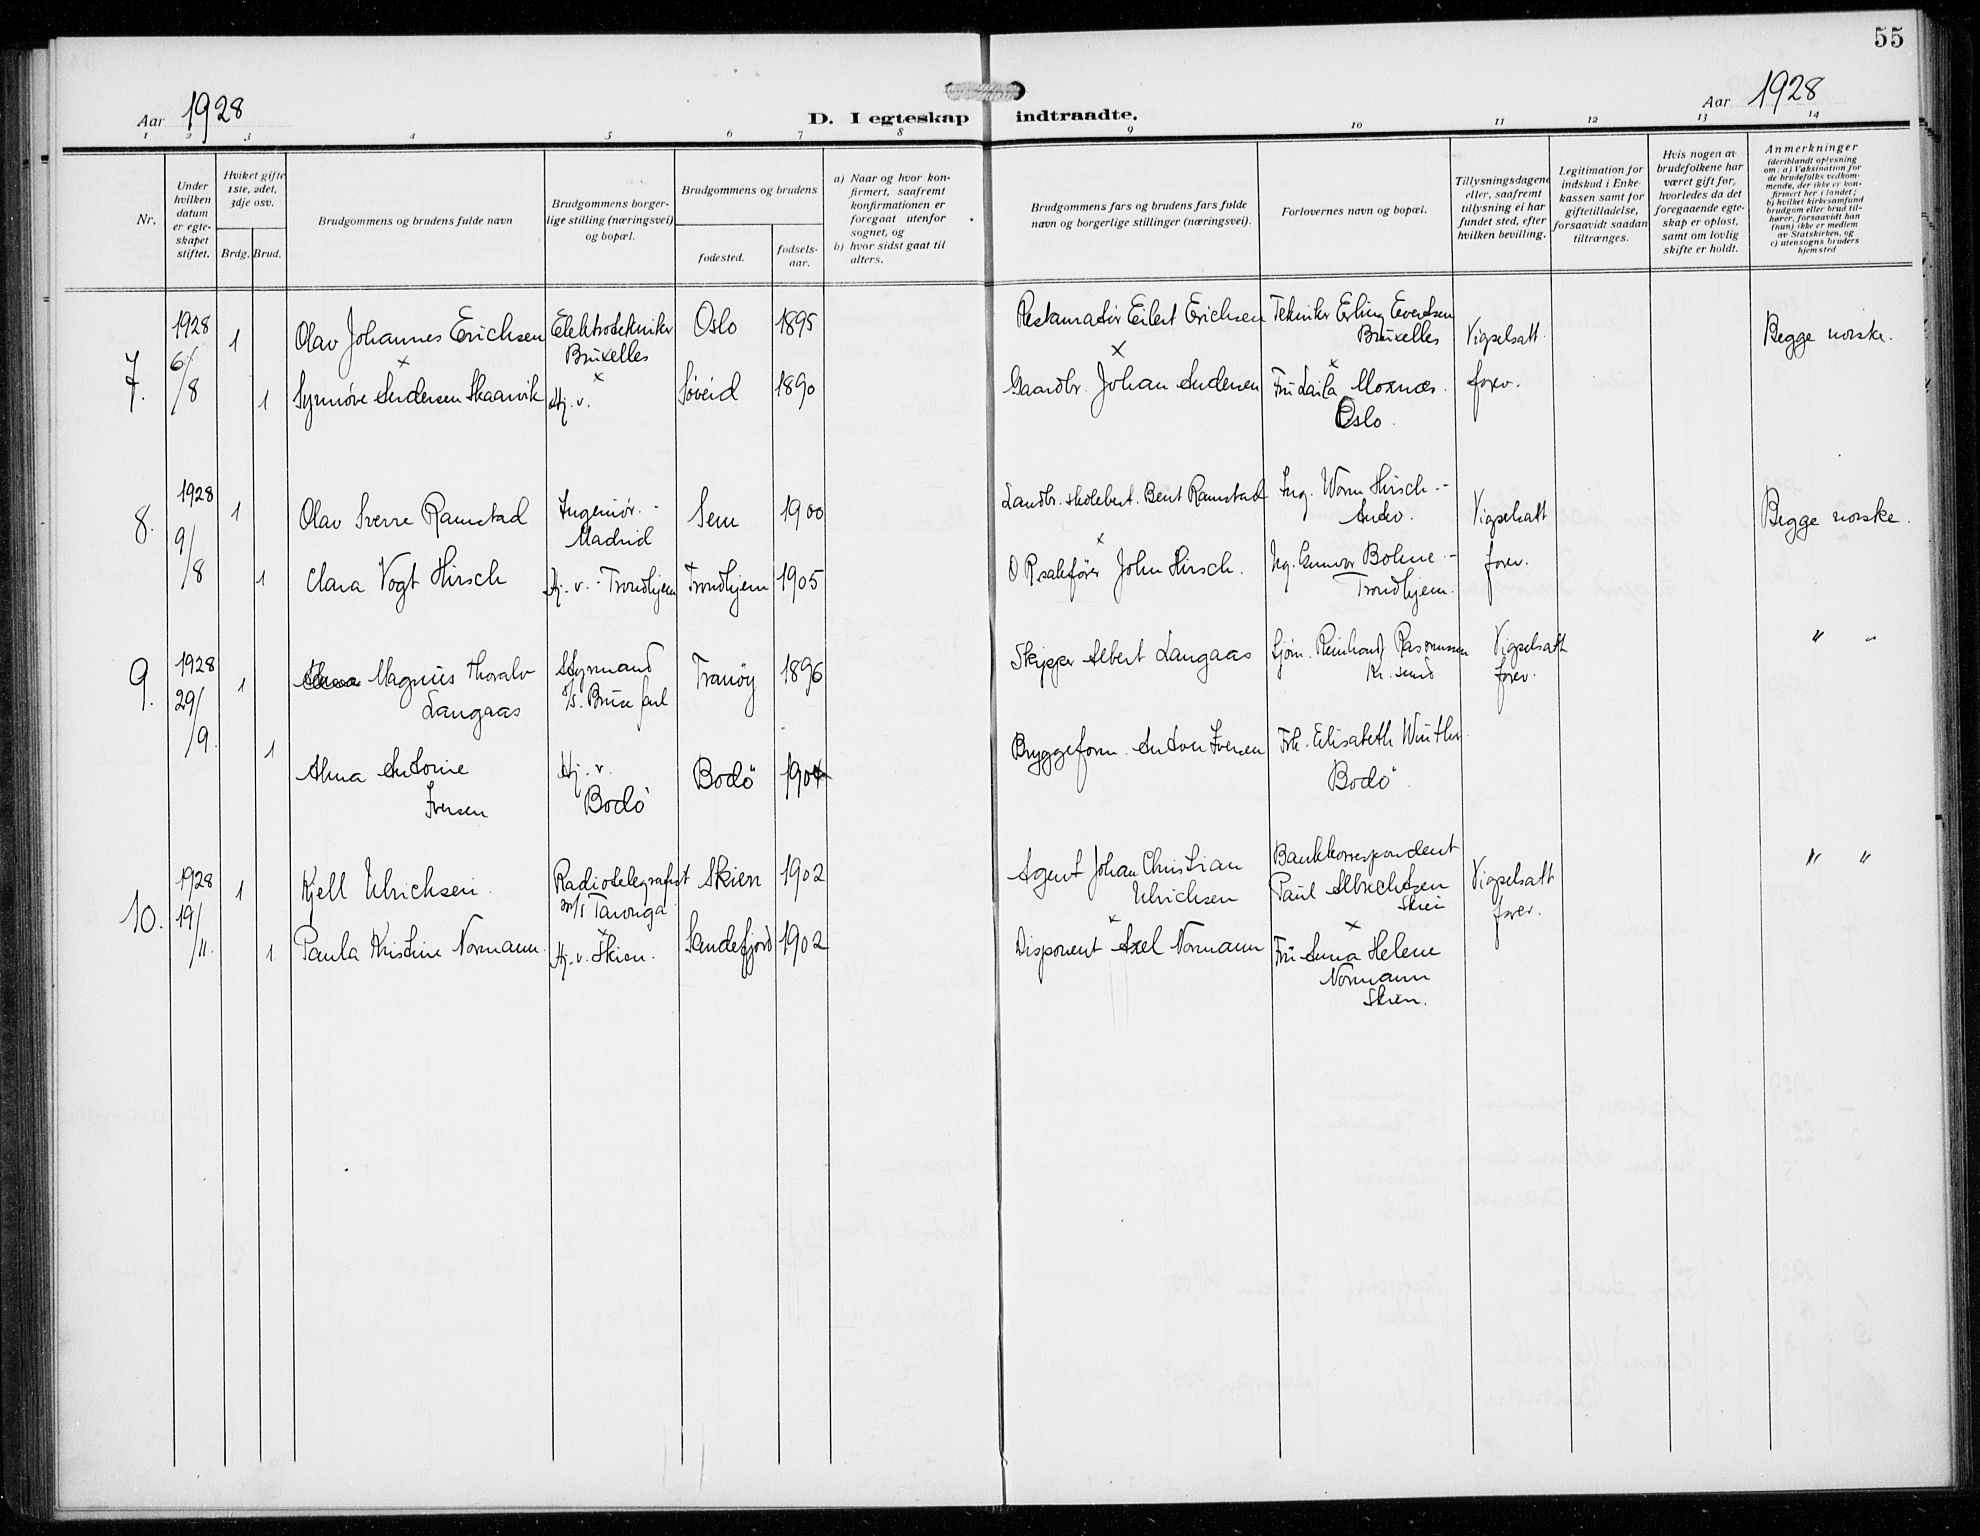 55
Aar 1928
D. I egteskap indtraadte.
Aar 1928
1 2 3 4 5 6 7 8 9 10 11 12 13 14
Nr.
Under
hvilken
datum
er egte-
skapet
stiftet.
Hviket gifte
1ste, 2det,
3dje osv.
Brdg. Brud.
Brudgommens og brudens fulde navn
Brudgommens borger-
lige stilling (næringsvei)
og bopæl.
Brudgommens og brudens
fødested.
fødsels-
aar.
a) Naar og hvor kon-
firmert, saafremt
konfirmationen er
foregaat utenfor
sognet, og
b) hvor sidst gaat til
alters.
Brudgommens fars og brudens fars fulde
navn og borgerlige stillinger (næringsvei).
Forlovernes navn og bopæl.
Tillysningsdagene
eller, saafremt
tillysning ei har
fundet sted, efter
hvilken bevilling.
Legitimation for
indskud i Enke-
kassen samt for
giftetilladelse,
forsaavidt saadan
tiltrænges.
Hvis nogen av
brudefolkene har
været gift før,
hvorledes da det
foregaaende egte-
skap er opløst,
samt om lovlig
skifte er holdt.
Anmerkninger
(deriblandt oplysning
om: a) Vaksination for
de brudefolks vedkom-
mende, der ikke er kon-
firmert her i landet;
b) hvilket kirkesamfund
brudgom eller brud til-
hører, forsaavidt han
(hun) ikke er medlem
av Statskirken, og
c) utensogns bruders
hjemsted
7.
1928
6/
/8
1
Olav Johannes Erichsen
Elektrotekniker
Bruxelles
Oslo
1895
Restauratør Eilert Erichsen
Tekniker Erling Evertsen
Bruxelles
Vigselsatt.
forev.
Begge norske.
1
Synnøve Andersen Skaanvik
Hj. v.
1890
Gaardbr. Johan Andersen
Fru Laila Moxnæs.
Oslo.
8.
1928
9/
/8
1
Olav Sverre Ramstad
Ingeniør. -
Madrid
Sem
1900
Landbr. skolebest. Bent Ramstad
Ing. Worm Hirsch. -
Vigselsatt
forev.
Begge norske.
1
Clara Vogt Hirsch
Hj. v. - Trondhjem
Trondhjem
1905
O R sakfører John Hirsch.
Ing. Gunnar Bohne -
Trondhjem.
9.
1928
29/
/9.
1
Magnus Thoralv
Langaas
Styrmand
Tranöy
1896
Skipper Albert Langaas
Sjøm. Reinhard Rasmussen
Kr. sund
Vigselsatt
forev.
" "
1
Alma Antonie
Iversen
Hj. v.
Bodö
Bodö
1904
Bryggeform. Anton Iversen
Frk. Elisabeth Winther
Bodö.
10.
1928
19/
/11.
1
Kjell Ulrichsen.
Radiotelegrafist
m/s Taronga
Skien
1902
Agent Johan Christian
Ulrichsen
Bankkorrespondent
Paul Albrechtsen
Skien
Vigselsatt
forev.
" "
1
Paula Kristine Normann.
Hj. v. Skien.
Sandefjord
1902
Disponent Axel Normann
Fru Anna Helene
Normann
Skien.